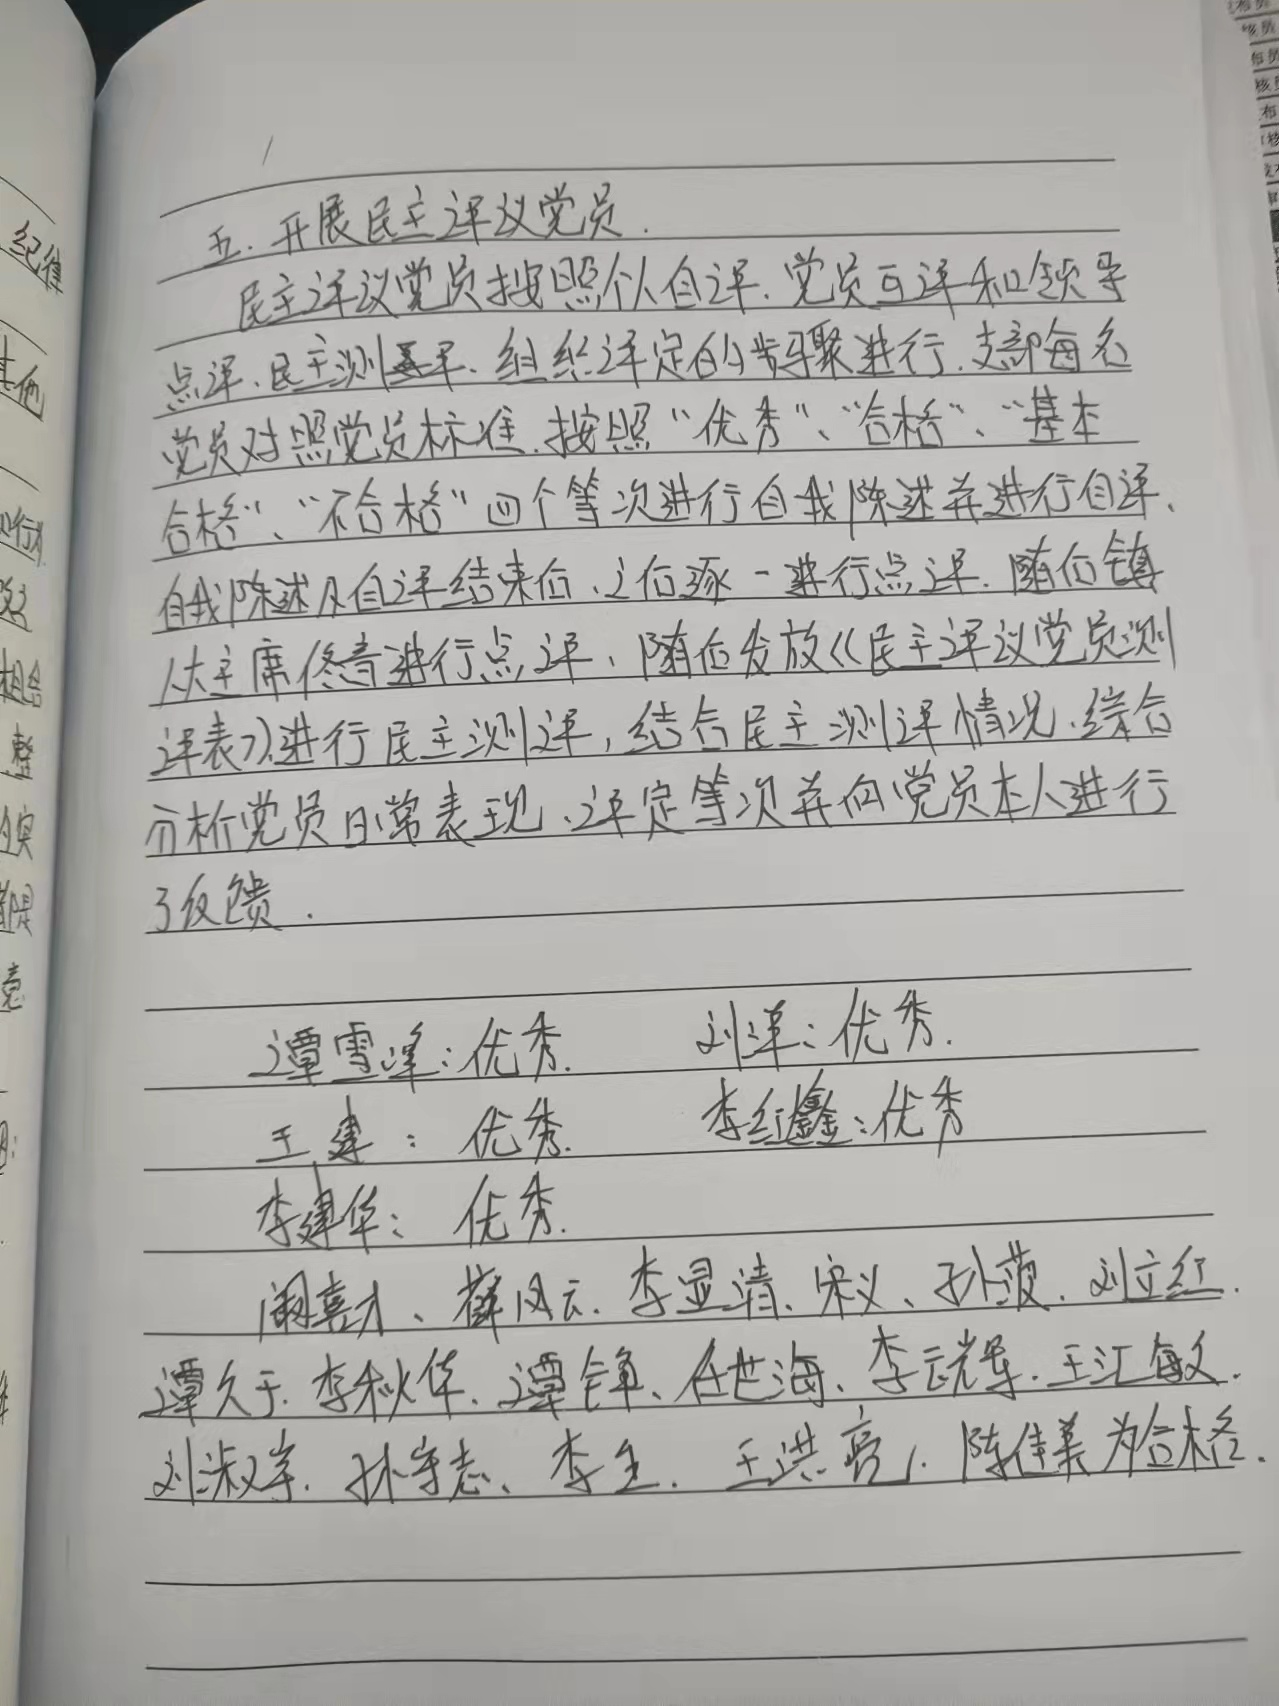 五、开展民主评议党员.
民主评议党员按照个人自评、党员互评和领导
点评、民主测评、组织评定的步骤进行.支部每名
党员对照党员标准、按照“优秀”、“合格”、“基本
合格”、“不合格”四个等次进行自我陈述并进行自评、
自我陈述及自评结束后、之后逐一进行点评.随后镇
人大主席佟音进行点评、随后发放《民主评议党员测
评表》进行民主测评,结合民主测评情况、综合
分析党员日常表现、评定等次并向党员本人进行
了反馈.
谭雪峰:优秀. 刘洋:优秀.
王建:优秀. 李红鑫:优秀
李建华:优秀.
阚喜才、薛凤云、李显清、宋义、孙菠、刘立红.
谭久于、李秋华、谭锋、任世海、李云辉、王汇敏.
刘淑芹、孙守志、李生、王洪亮、陈佳美为合格.
纪律
其他
相结
整
意